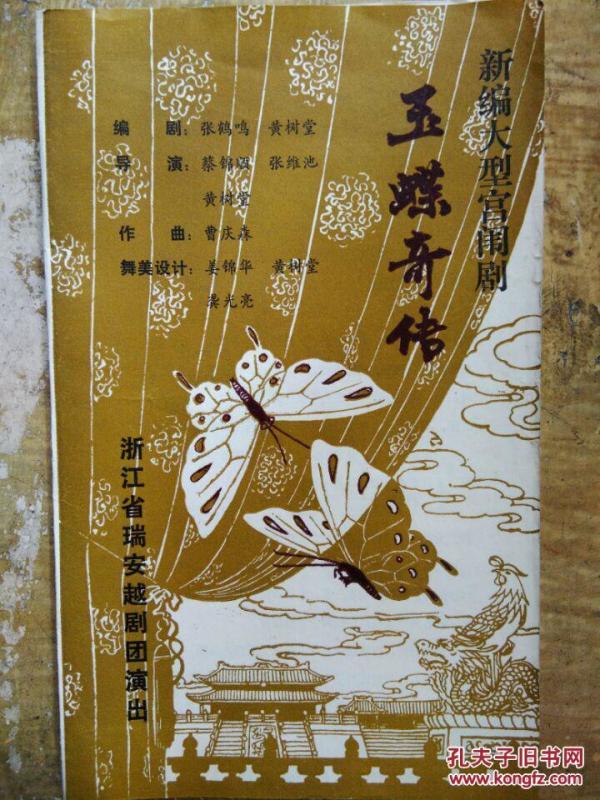 新编大型宫闱剧
玉蝶奇传
编 剧：张鹤鸣 黄树堂
导 演：蔡锦顺 张维池
黄树堂
作 曲：曹庆森
舞美设计：姜锦华 黄树堂
龚光亮
浙江省瑞安越剧团演出
孔夫子旧书网
www.kongfz.com